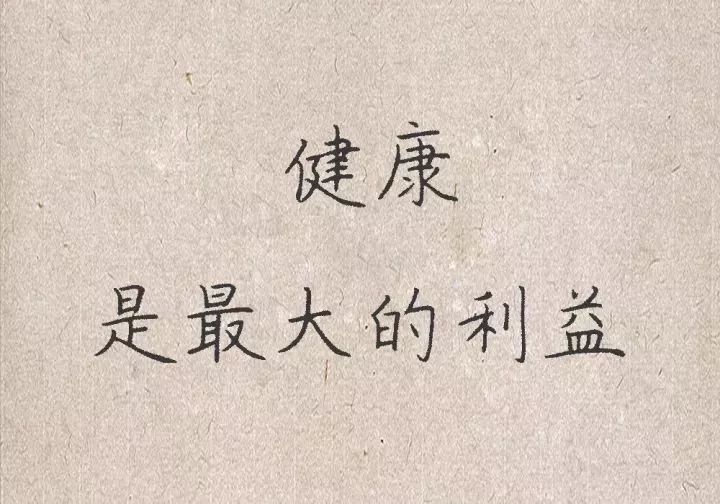 健康
是最大的利益